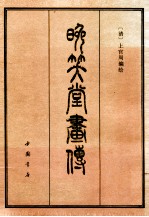 〔清〕上官周編繪
晚笑堂畫傳
中國書店